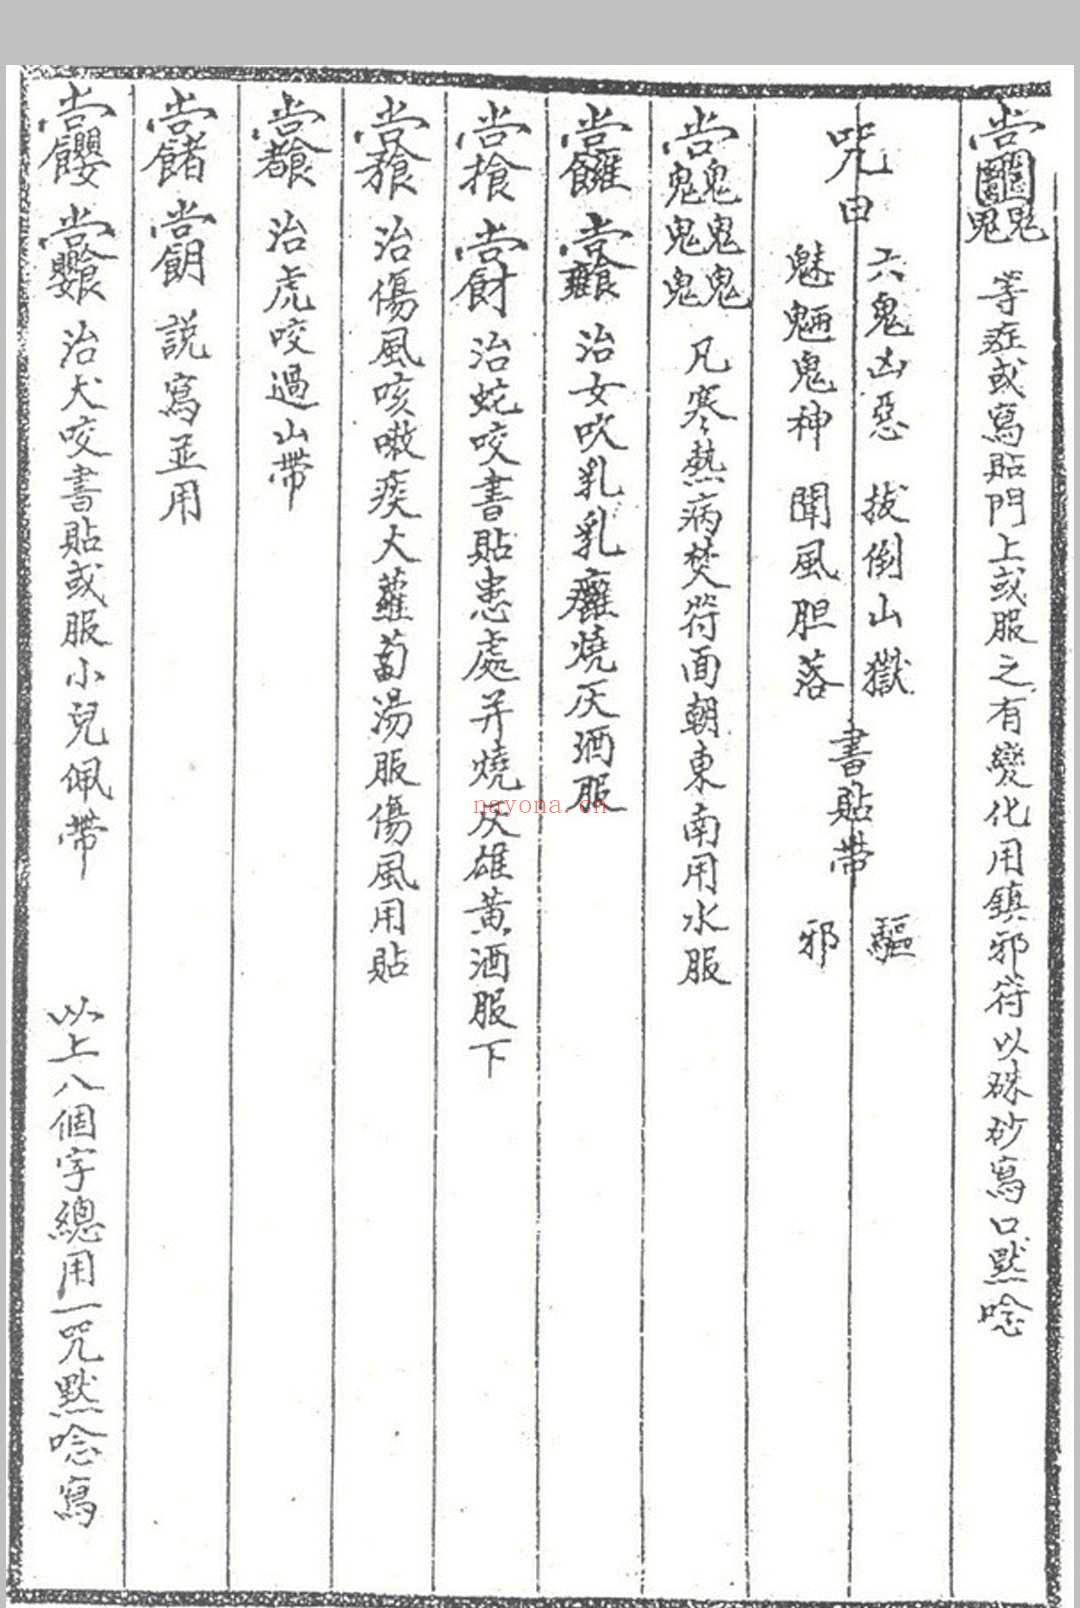 等症或寫貼門上或服之有變化用鎮邪符以硃砂寫口默唸
咒曰
六鬼凶惡 拔倒山獄
魅魎鬼神 聞風胆落
書貼帶
驅邪
凡寒熱病焚符面朝東南用水服
治女吹乳乳癰燒灰酒服
治蛇咬書貼患處并燒灰雄黃酒服下
治傷風咳嗽痰火蘿蔔湯服傷風用貼
治虎咬過山帶
説寫並用
治犬咬書貼或服小兒佩帶
以上八個字總用一咒默唸寫
nayona.cn